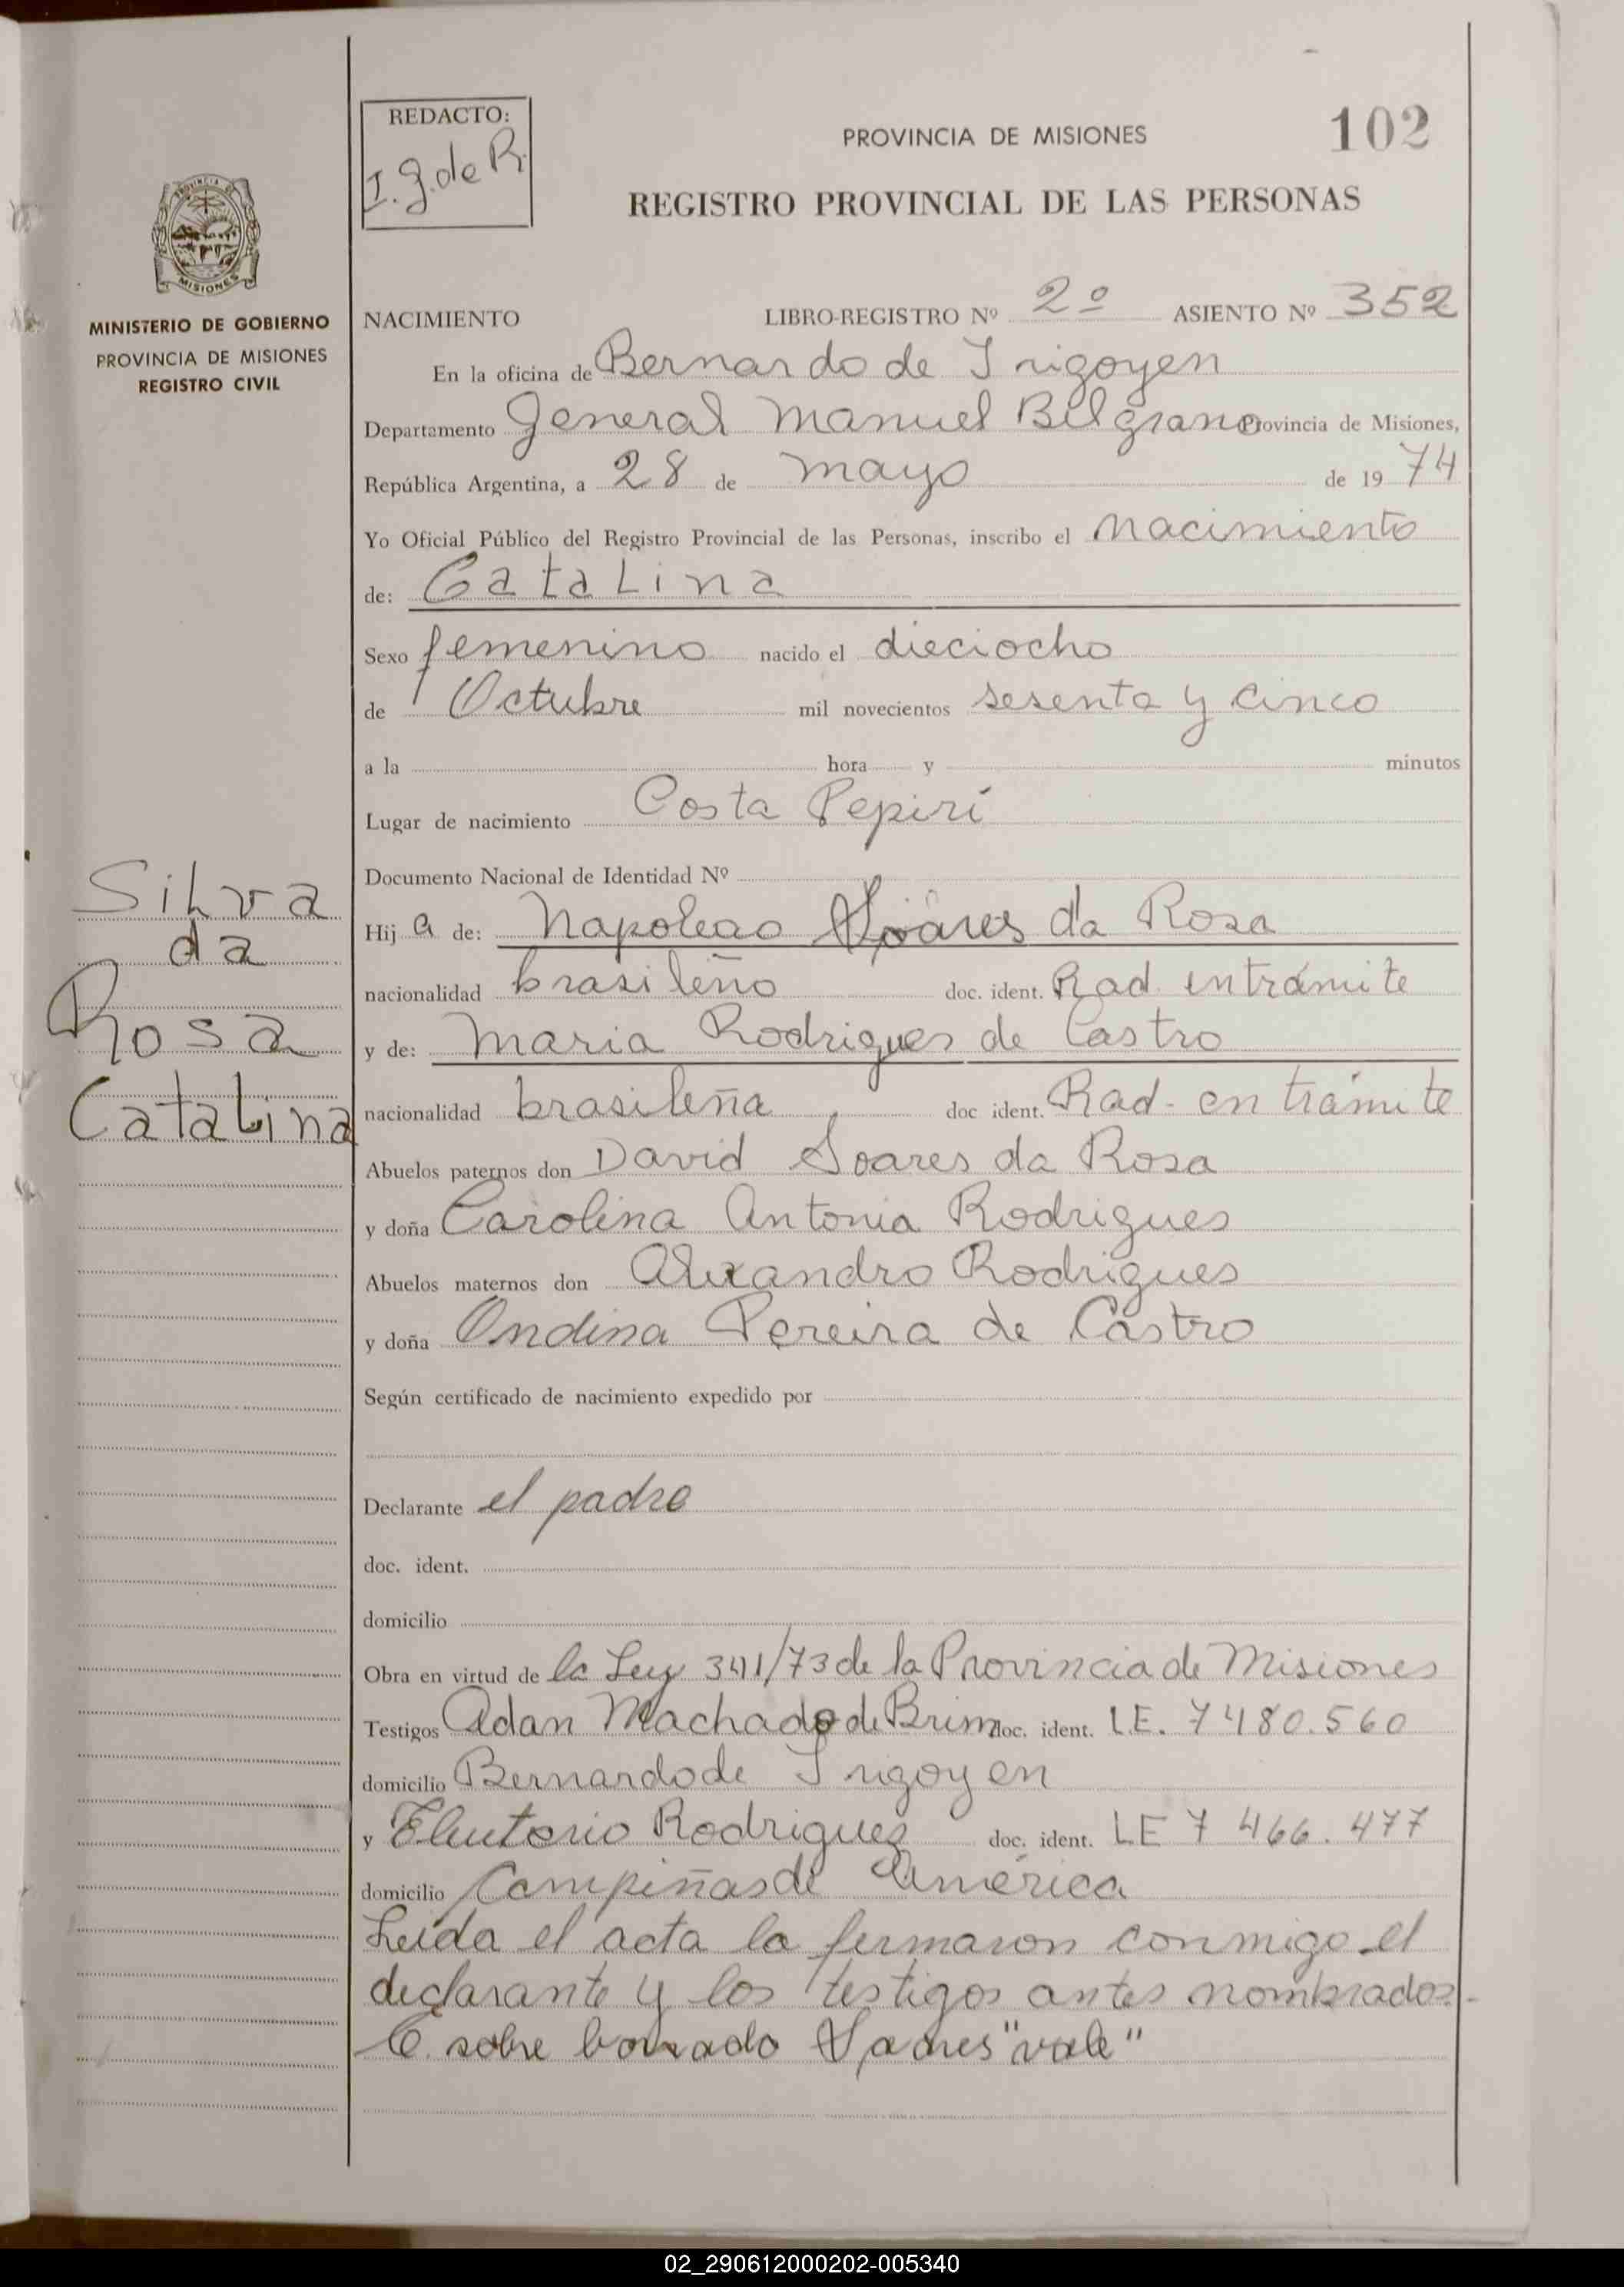 REDACTO:
I. G. de R.
PROVINCIA DE MISIONES
102
REGISTRO PROVINCIAL DE LAS PERSONAS
PROVINCIA DE
MISIONES
MINISTERIO DE GOBIERNO
PROVINCIA DE MISIONES
REGISTRO CIVIL
NACIMIENTO LIBRO-REGISTRO Nº 2º ASIENTO Nº 352
En la oficina de Bernardo de Irigoyen
Departamento General Manuel Belgrano Provincia de Misiones,
República Argentina, a 28 de mayo de 1974
Yo Oficial Público del Registro Provincial de las Personas, inscribo el Nacimiento
de: Catalina
Sexo femenino nacido el dieciocho
de Octubre mil novecientos sesenta y cinco
a la hora y minutos
Lugar de nacimiento Costa Pepirí
Documento Nacional de Identidad Nº
Silva
da
Rosa
Catalina
Hij a de: Napoleao Soares da Rosa
nacionalidad brasileño doc. ident. Rad. en trámite
y de: Maria Rodrigues de Castro
nacionalidad brasileña doc ident. Rad- en trámite
Abuelos paternos don David Soares da Rosa
y doña Carolina Antonia Rodrigues
Abuelos maternos don Alexandro Rodrigues
y doña Ondina Pereira de Castro
Según certificado de nacimiento expedido por
Declarante el padre
doc. ident.
domicilio
Obra en virtud de la Ley 341/73 de la Provincia de Misiones
Testigos Adan Machado de Brim doc. ident. L.E. 7480.560
domicilio Bernardo de Irigoyen
y Eleuterio Rodriguez doc. ident. LE 7 466.477
domicilio Campiñas de América
Leida el acta la firmaron conmigo el
declarante y los testigos antes nombrados.-
E. sobre borrado Soares "vale"
02_290612000202-005340